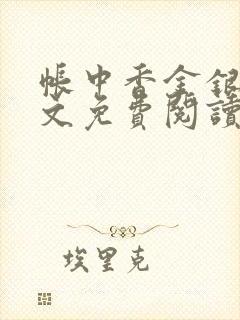 帳中香金銀
文免費閱讀
埃里克